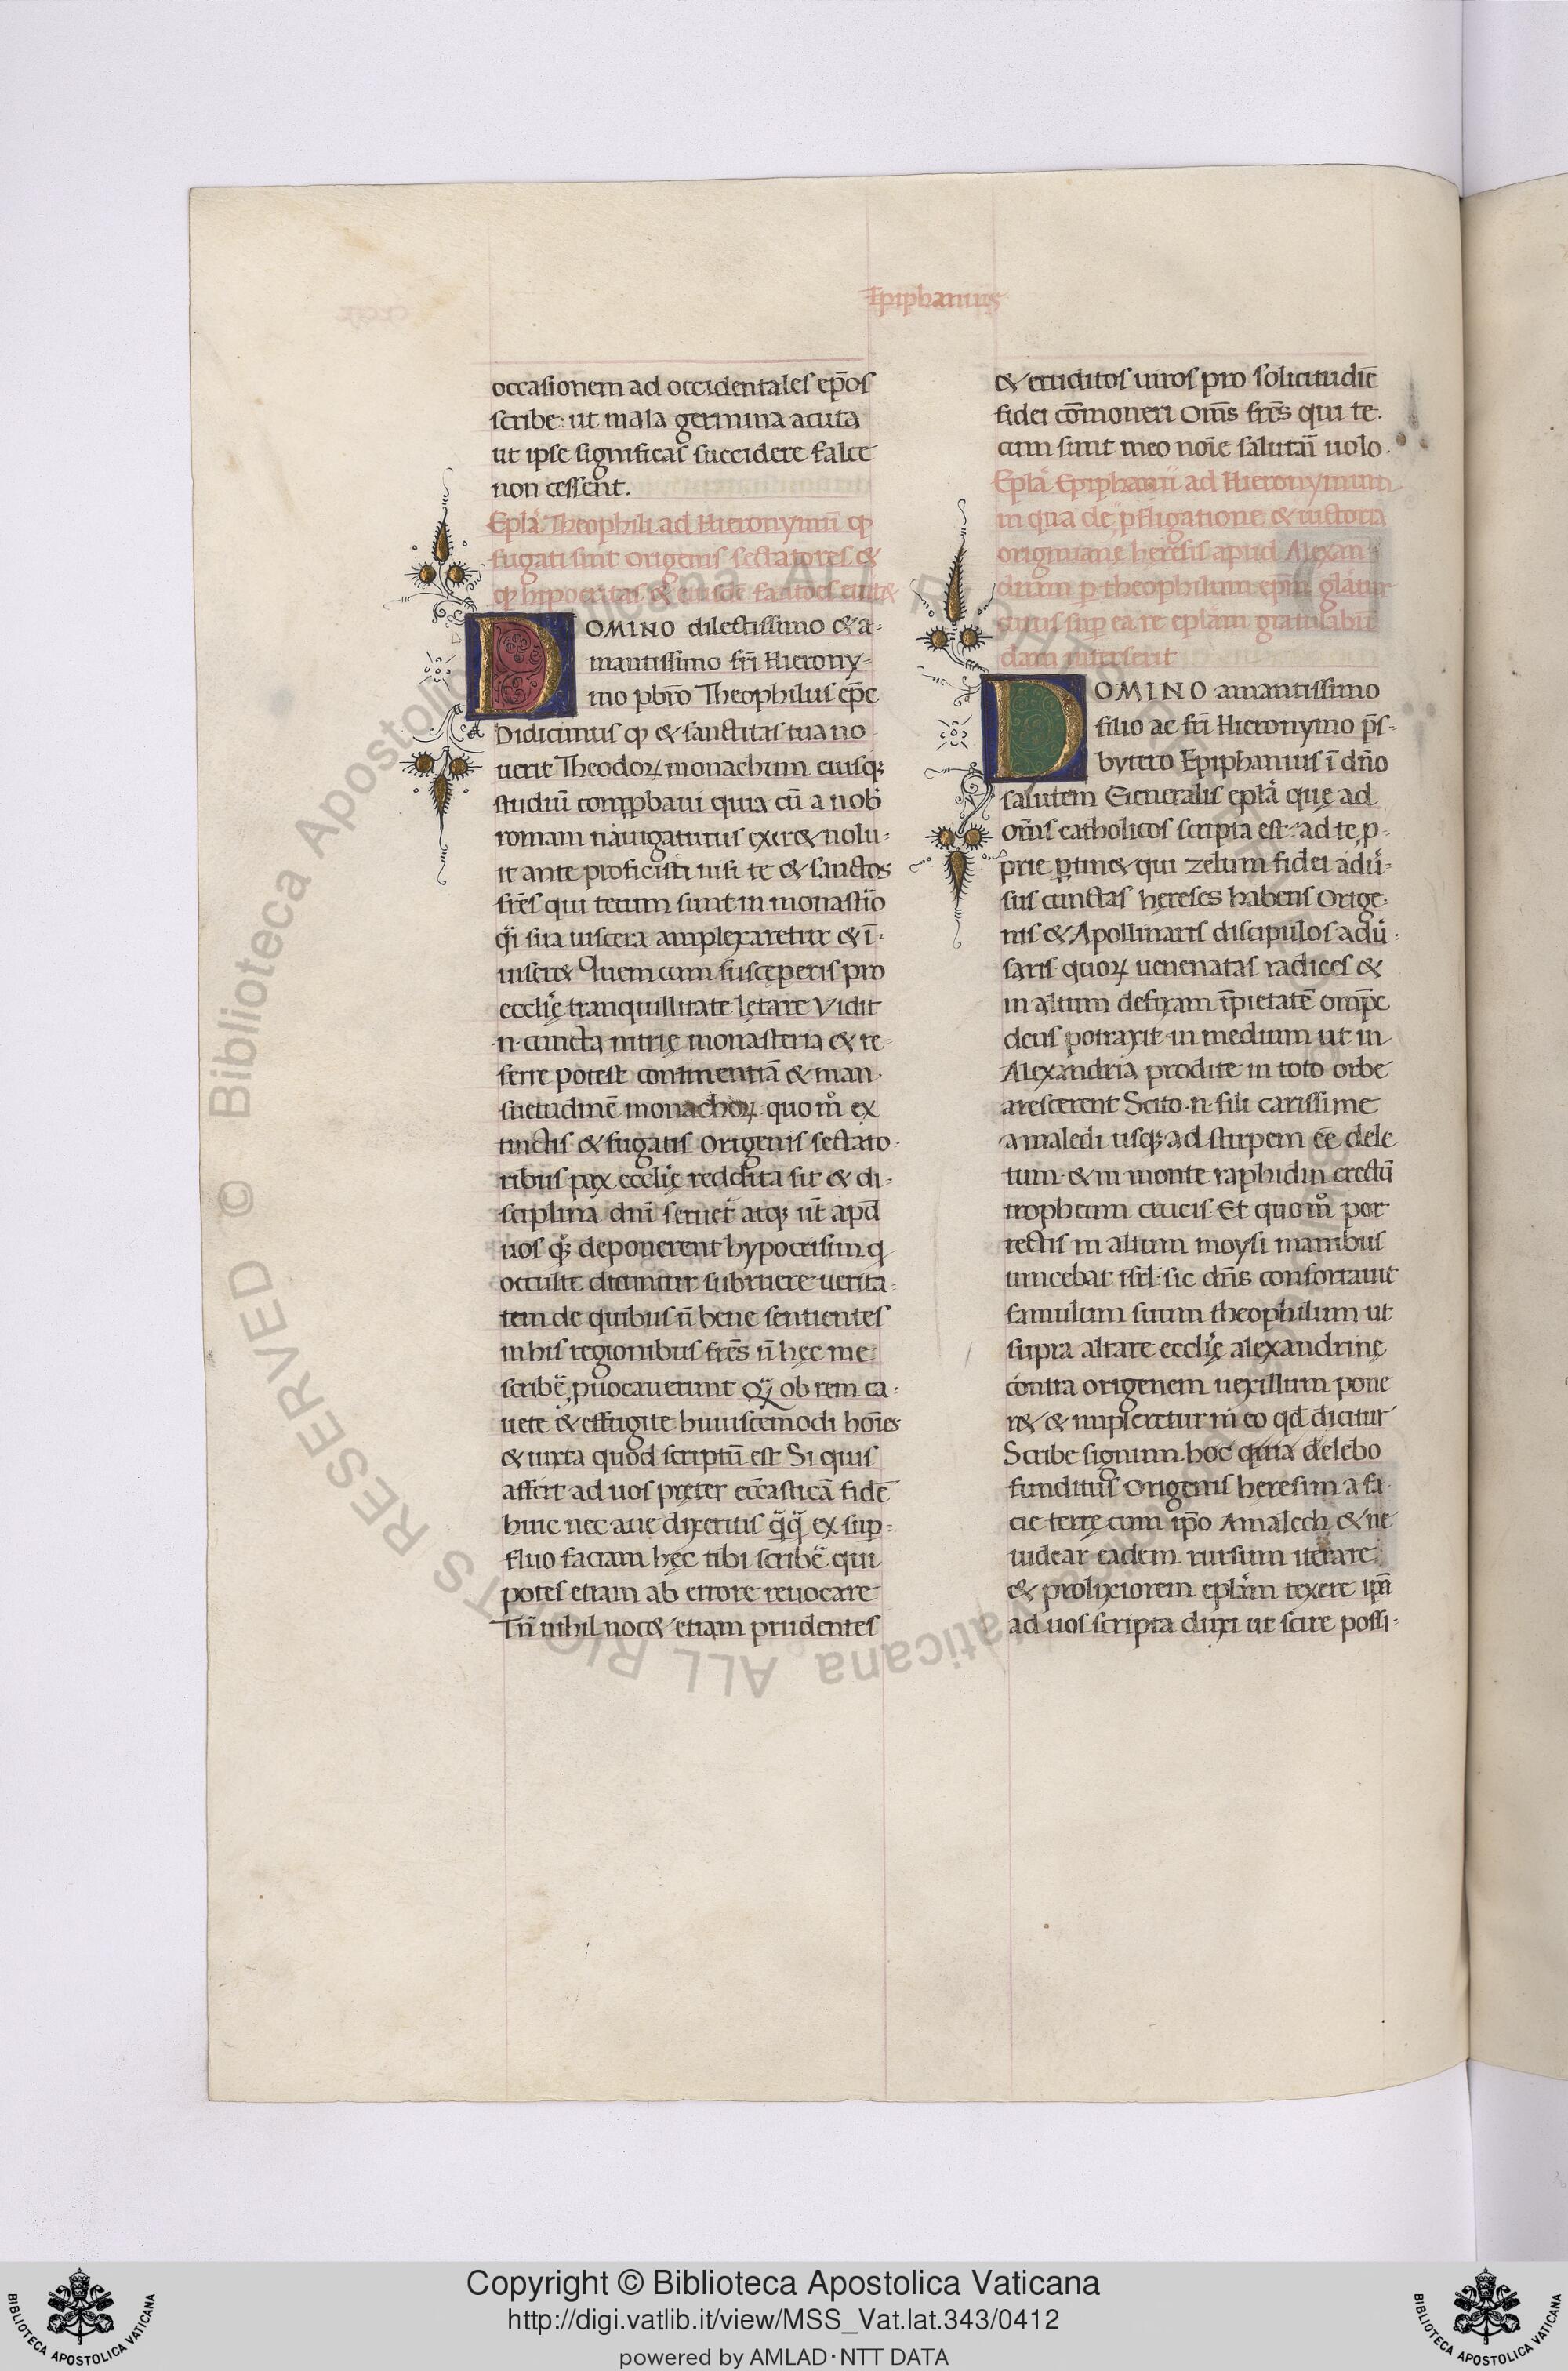 Epiphanius
occasionem ad occidentales ep̄os
scribe: ut mala germina acuta
ut ipse significas succidere falce
non cessent.
Epl̄a Theophili ad Hieronymū ꝙ
fugati sint Origenis sectatores &
ꝙ hipocritas & eiusdē fautores
DOMINO dilectissimo & a-
mantissimo fr̄i Hierony-
mo pbr̄o Theophilus ep̄c
Didicimus ꝙ & sanctitas tua no
uerit Theodoꝝ monachum eiusqꝫ
studiū comꝓbaui quia cū a nob̄
romam nauigaturus exir& nolu-
it ante proficisci nisi te & sanctos
fr̄es qui tecum sunt in monast̄io
q̄i sua uiscera amplexaretur & ī-
uiser& Quem cum susceperis pro
eccl̄ię tranquillitate lętare Vidit
.n. cuncta nitrię monasteria & re-
ferre potest continentiā & man-
suetudinē monachoꝝ: quom̊ ex
tinctis & fugatis Origenis sectato-
ribus pax eccl̄ię reddita sit & di-
sciplina dn̄i seruet̄ atqꝫ ut̄ apd̄
uos qꝫ deponerent hypocrisim q
occulte dicuntur subruere uerita-
tem de quibus n̄ bene sentientes
in his regionibus fr̄es n̄ hęc me
scribe͂ ꝓuocauerunt Qͣ ob rem ca-
uete & effugite huiuscemodi hoīes
& iuxta quod scriptū est Si quis
affert ad uos pręter ecc̄asticā fidē
huic nec aue dixeritis q̄q̄ ex suꝑ-
fluo faciam hęc tibi scribe͂ qui
potes etiam ab errore reuocare
Tn̄ nihil noc& etiam prudentes
& eruditos uiros pro solicitudīe
fidei cōmoneri Om̄s fr̄es qui te-
cum sunt meo noīe salutāi uolo.
Epl̄a Epiphanii ad Hieronymum
in qua de ꝓfligatione & uictoria
originianę heresis apud Alexan
driam ꝑ theophilum ep̄m gl̄atur
cuius suꝑ ea re epl̄am gratulabū
dam miserit
DOMINO amantissimo
filio ac fr̄i Hieronymo p̄s-
bytero Epiphanius ī dn̄o
salutem Generalis epl̄a quę ad
om̄s catholicos scripta est: ad te ꝓ-
prie ꝑtin& qui zelum fidei adu͛-
sus cunctas hereses habens Orige-
nis & Apollinaris discipulos adu͛-
saris quoꝝ uenenatas radices &
in altum defixam īpietatē omp̄c
deus potraxit in medium ut in
Alexandria prodite in toto orbe
arescerent Scito .n. fili carissime
amaledi usqꝫ ad stirpem eē dele
tum. & in monte raphidin erectū
tropheum crucis Et quom̊ por
rectis in altum moysi manibus
uincebat isrl̄: sic dn̄s confortauit
famulum suum theophilum ut
supra altare eccl̄ię alexandrinę
contra origenem uexillum pone
r& & impleretur in eo qd̄ dicitur
Scribe signum hoc quia delebo
funditus Origenis heresim a fa
cie terrę cum ip̄o Amalech & ne
uidear eadem rursum iterare
& prolixiorem epl̄am texere ip̄a
ad uos scripta dixi ut scire possi-
© Biblioteca Apostolica Vaticana ALL RIGHTS RESERVED
BIBLIOTECA APOSTOLICA VATICANA
Copyright © Biblioteca Apostolica Vaticana
http://digi.vatlib.it/view/MSS_Vat.lat.343/0412
powered by AMLAD·NTT DATA
BIBLIOTECA APOSTOLICA VATICANA